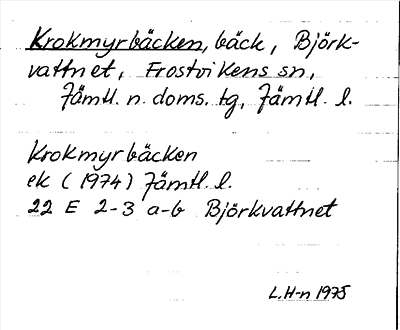 Krokmyrbäcken, bäck, Björk-
vattnet, Frostvikens sn,
Jämtl. n. doms. tg, Jämtl. l.
Krokmyrbäcken
ek (1974) Jämtl. l.
22 E 2-3 a-b Björkvattnet
L.H-n 1975